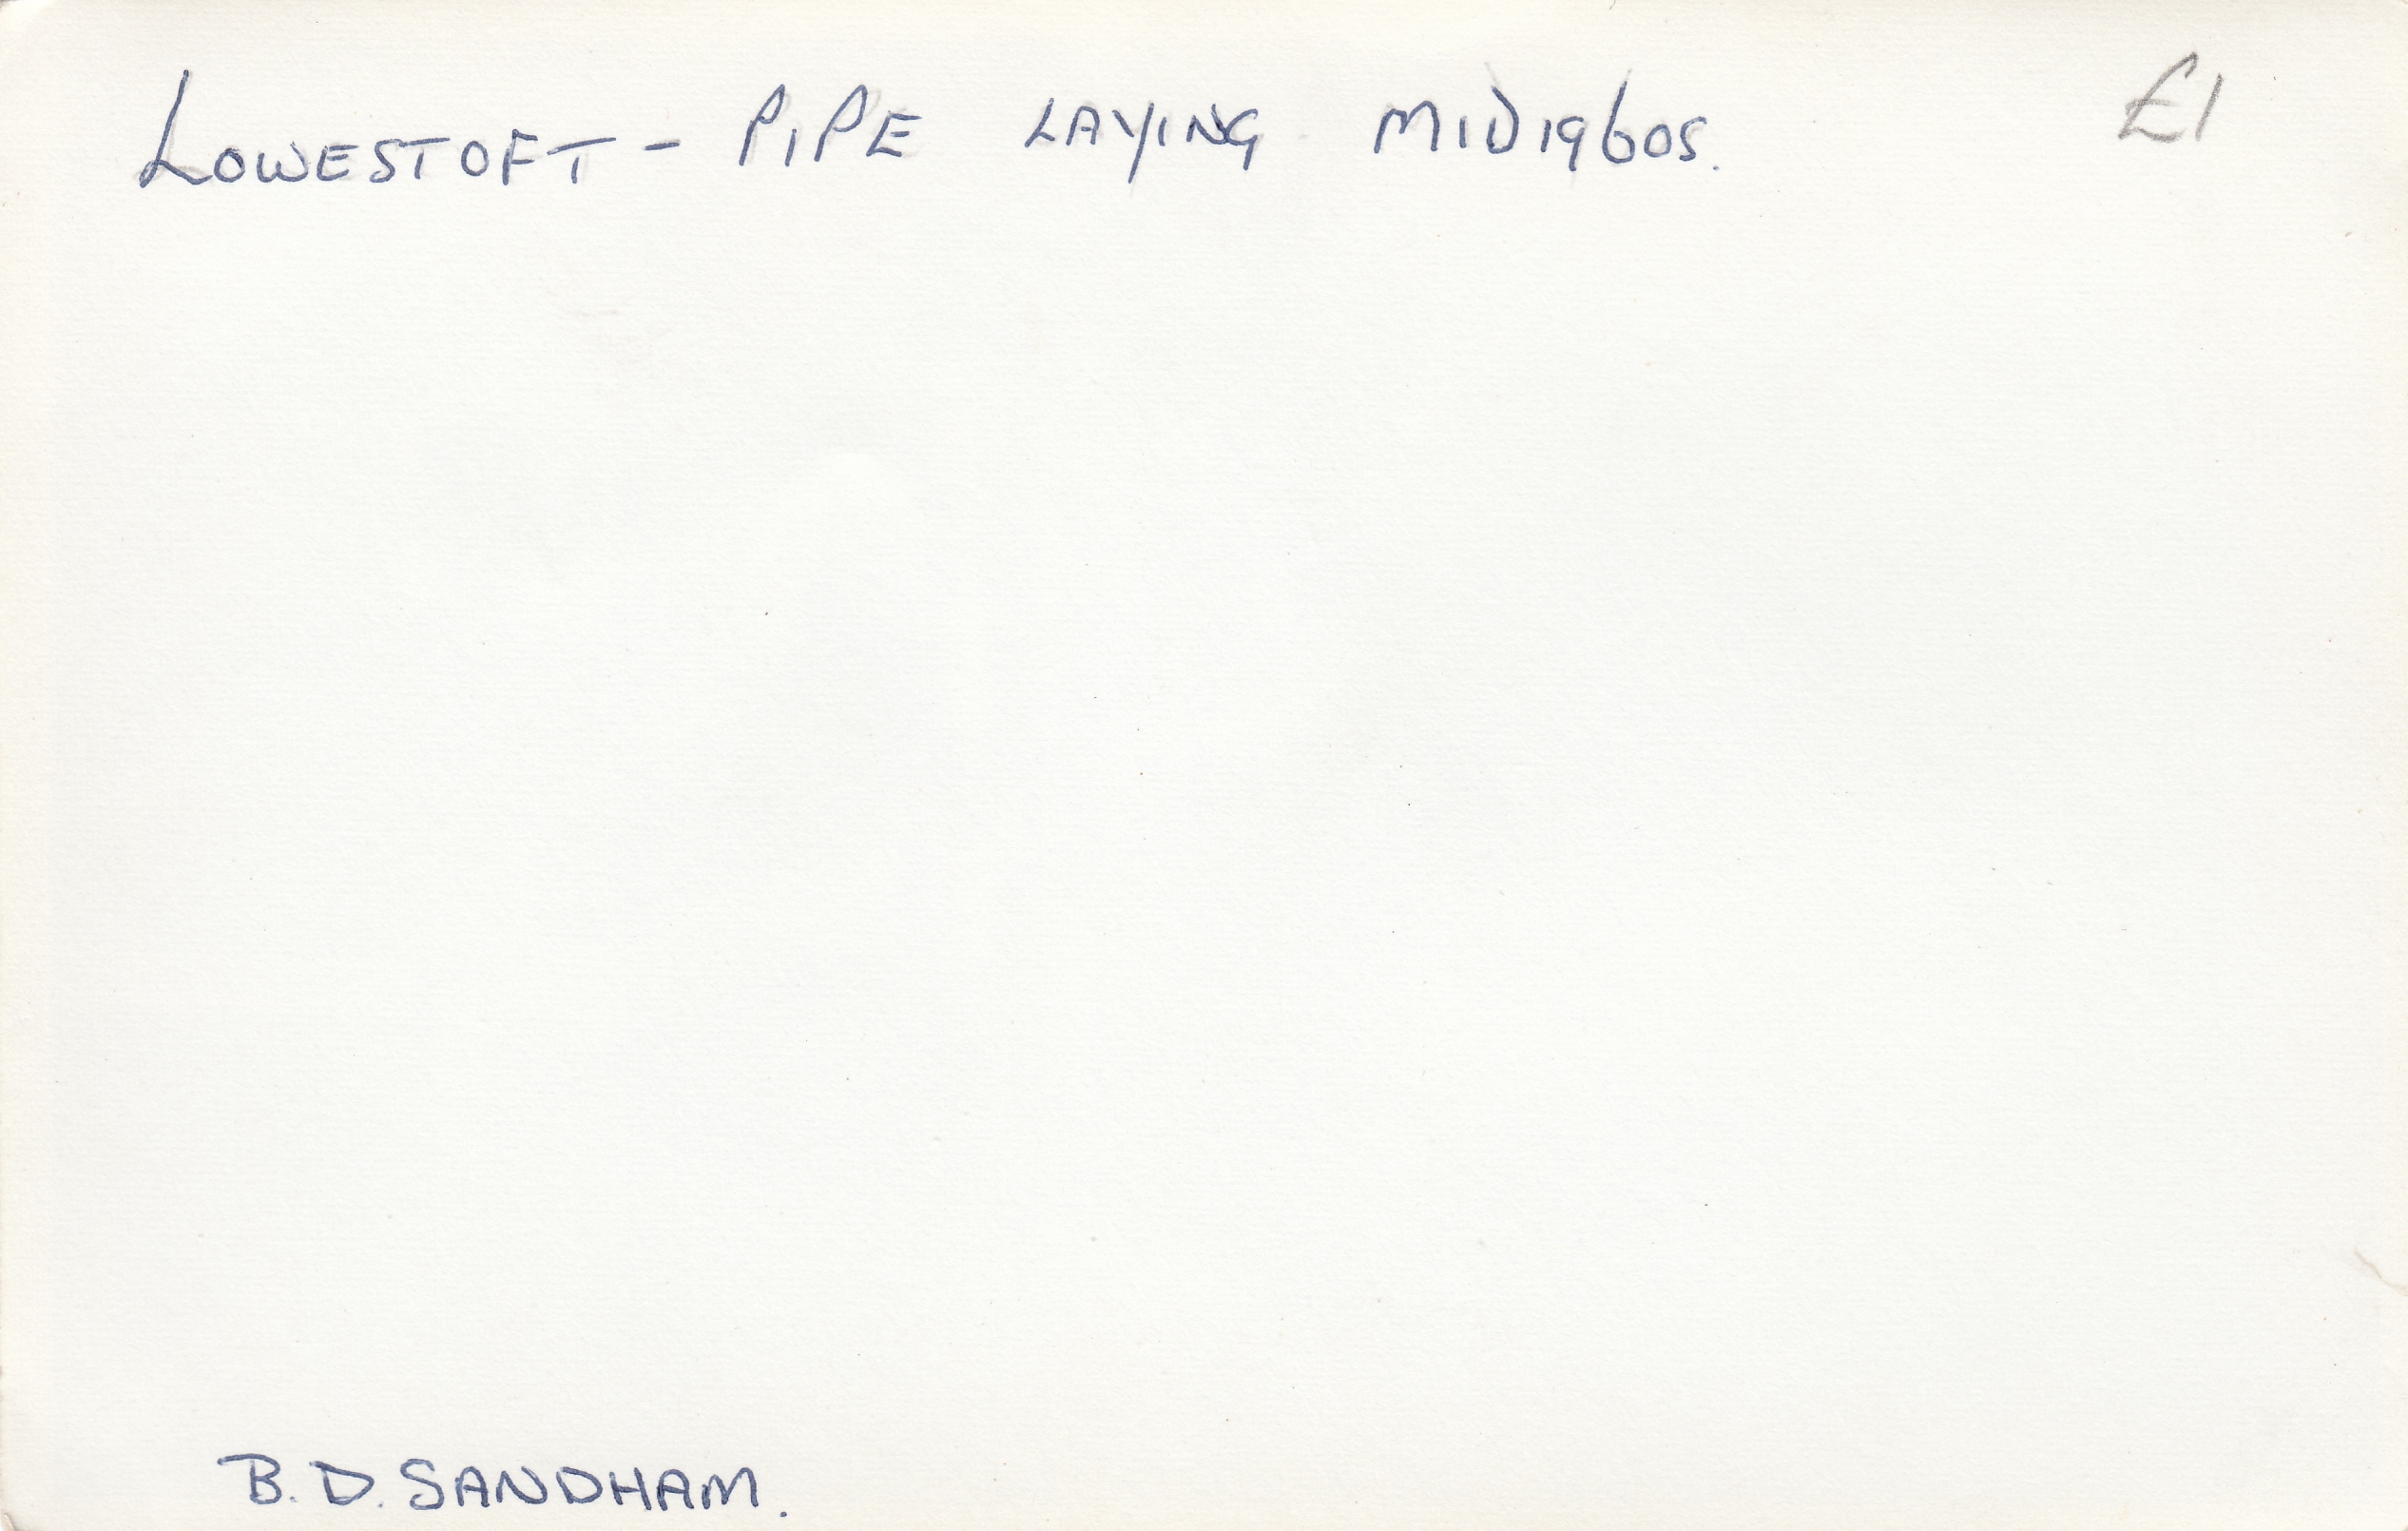 LOWESTOFT - PIPE LAYING MID 1960S. £1
B.D. SANDHAM.